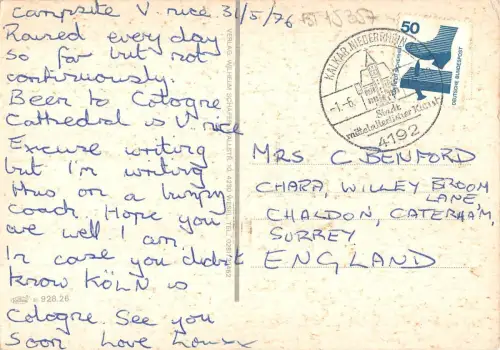 Campsite V. nice. 31/5/76
Rained every day
so far but not
continuously.
Beer to Cologne
Cathedral is V nice
Excuse writing
but I'm writing
this on a bumpy
coach. Hope you
are well I am.
In case you didn't
know KÖLN is
Cologne. See you
Soon love
928.26
VERLAG WILHELM
50
DEUTSCHE BUNDESPOST
KALKAR, NIEDERRHEIN
Stadt
mittelalterlicher Kunst
4192
MRS C BENFORD
CHARA, WILLEY BROOM
LANE,
CHALDON, CATERHAM,
SURREY
ENGLAND